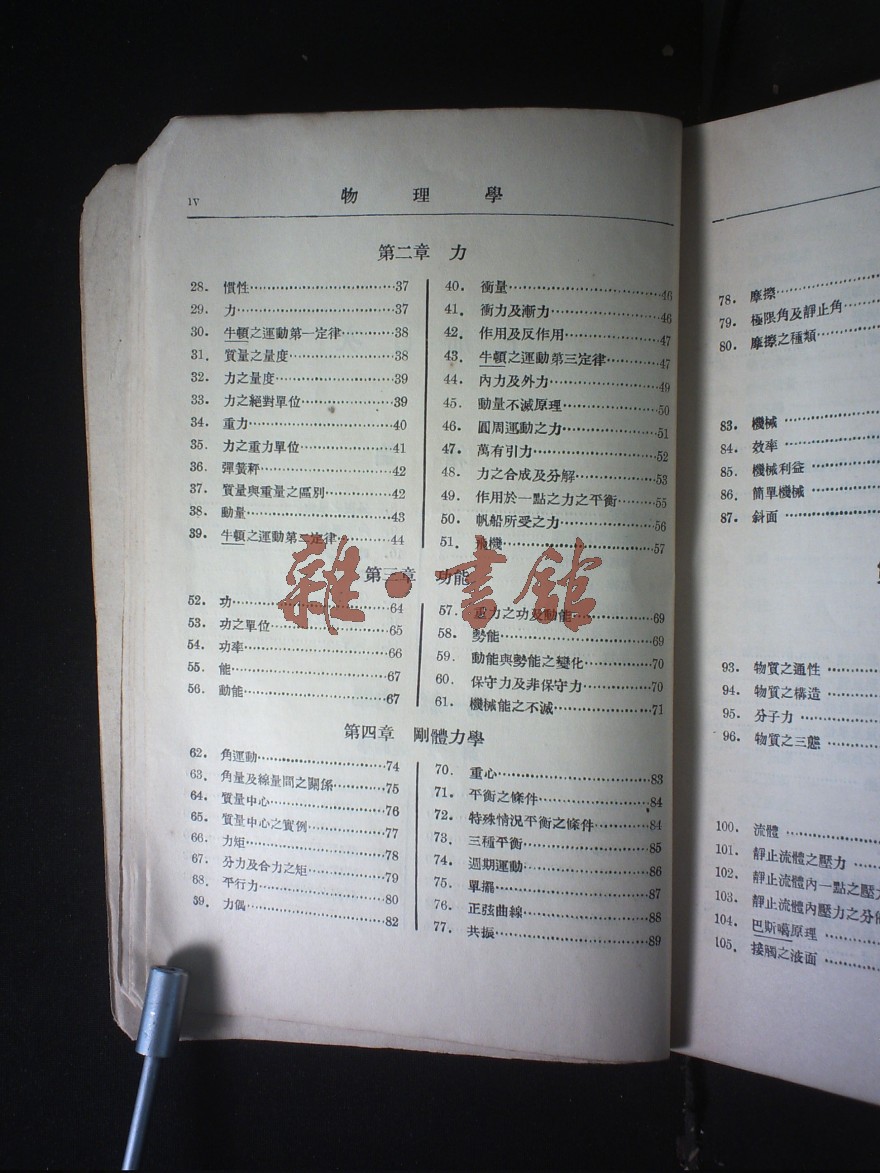 iv 物理學
第二章 力
28. 慣性 37
29. 力 37
30. 牛頓之運動第一定律 38
31. 質量之量度 38
32. 力之量度 39
33. 力之絕對單位 39
34. 重力 40
35. 力之重力單位 41
36. 彈簧秤 42
37. 質量與重量之區別 42
38. 動量 43
39. 牛頓之運動第二定律 44
40. 衝量 46
41. 衝力及漸力 46
42. 作用及反作用 47
43. 牛頓之運動第三定律 47
44. 內力及外力 49
45. 動量不滅原理 50
46. 圓周運動之力 51
47. 萬有引力 52
48. 力之合成及分解 53
49. 作用於一點之力之平衡 55
50. 帆船所受之力 56
51. 飛機 57
第三章 功能
雜·書館
52. 功 64
53. 功之單位 65
54. 功率 66
55. 能 67
56. 動能 67
57. 重力之功及動能 69
58. 勢能 69
59. 動能與勢能之變化 70
60. 保守力及非保守力 70
61. 機械能之不滅 71
第四章 剛體力學
62. 角運動 74
63. 角量及線量間之關係 75
64. 質量中心 76
65. 質量中心之實例 77
66. 力矩 78
67. 分力及合力之矩 79
68. 平行力 80
69. 力偶 82
70. 重心 83
71. 平衡之條件 84
72. 特殊情況平衡之條件 84
73. 三種平衡 85
74. 週期運動 86
75. 單擺 87
76. 正弦曲線 88
77. 共振 89
78. 摩擦
79. 極限角及靜止角
80. 摩擦之種類
83. 機械
84. 效率
85. 機械利益
86. 簡單機械
87. 斜面
93. 物質之通性
94. 物質之構造
95. 分子力
96. 物質之三態
100. 流體
101. 靜止流體之壓力
102. 靜止流體內一點之壓力
103. 靜止流體內壓力之分佈
104. 巴斯噶原理
105. 接觸之液面